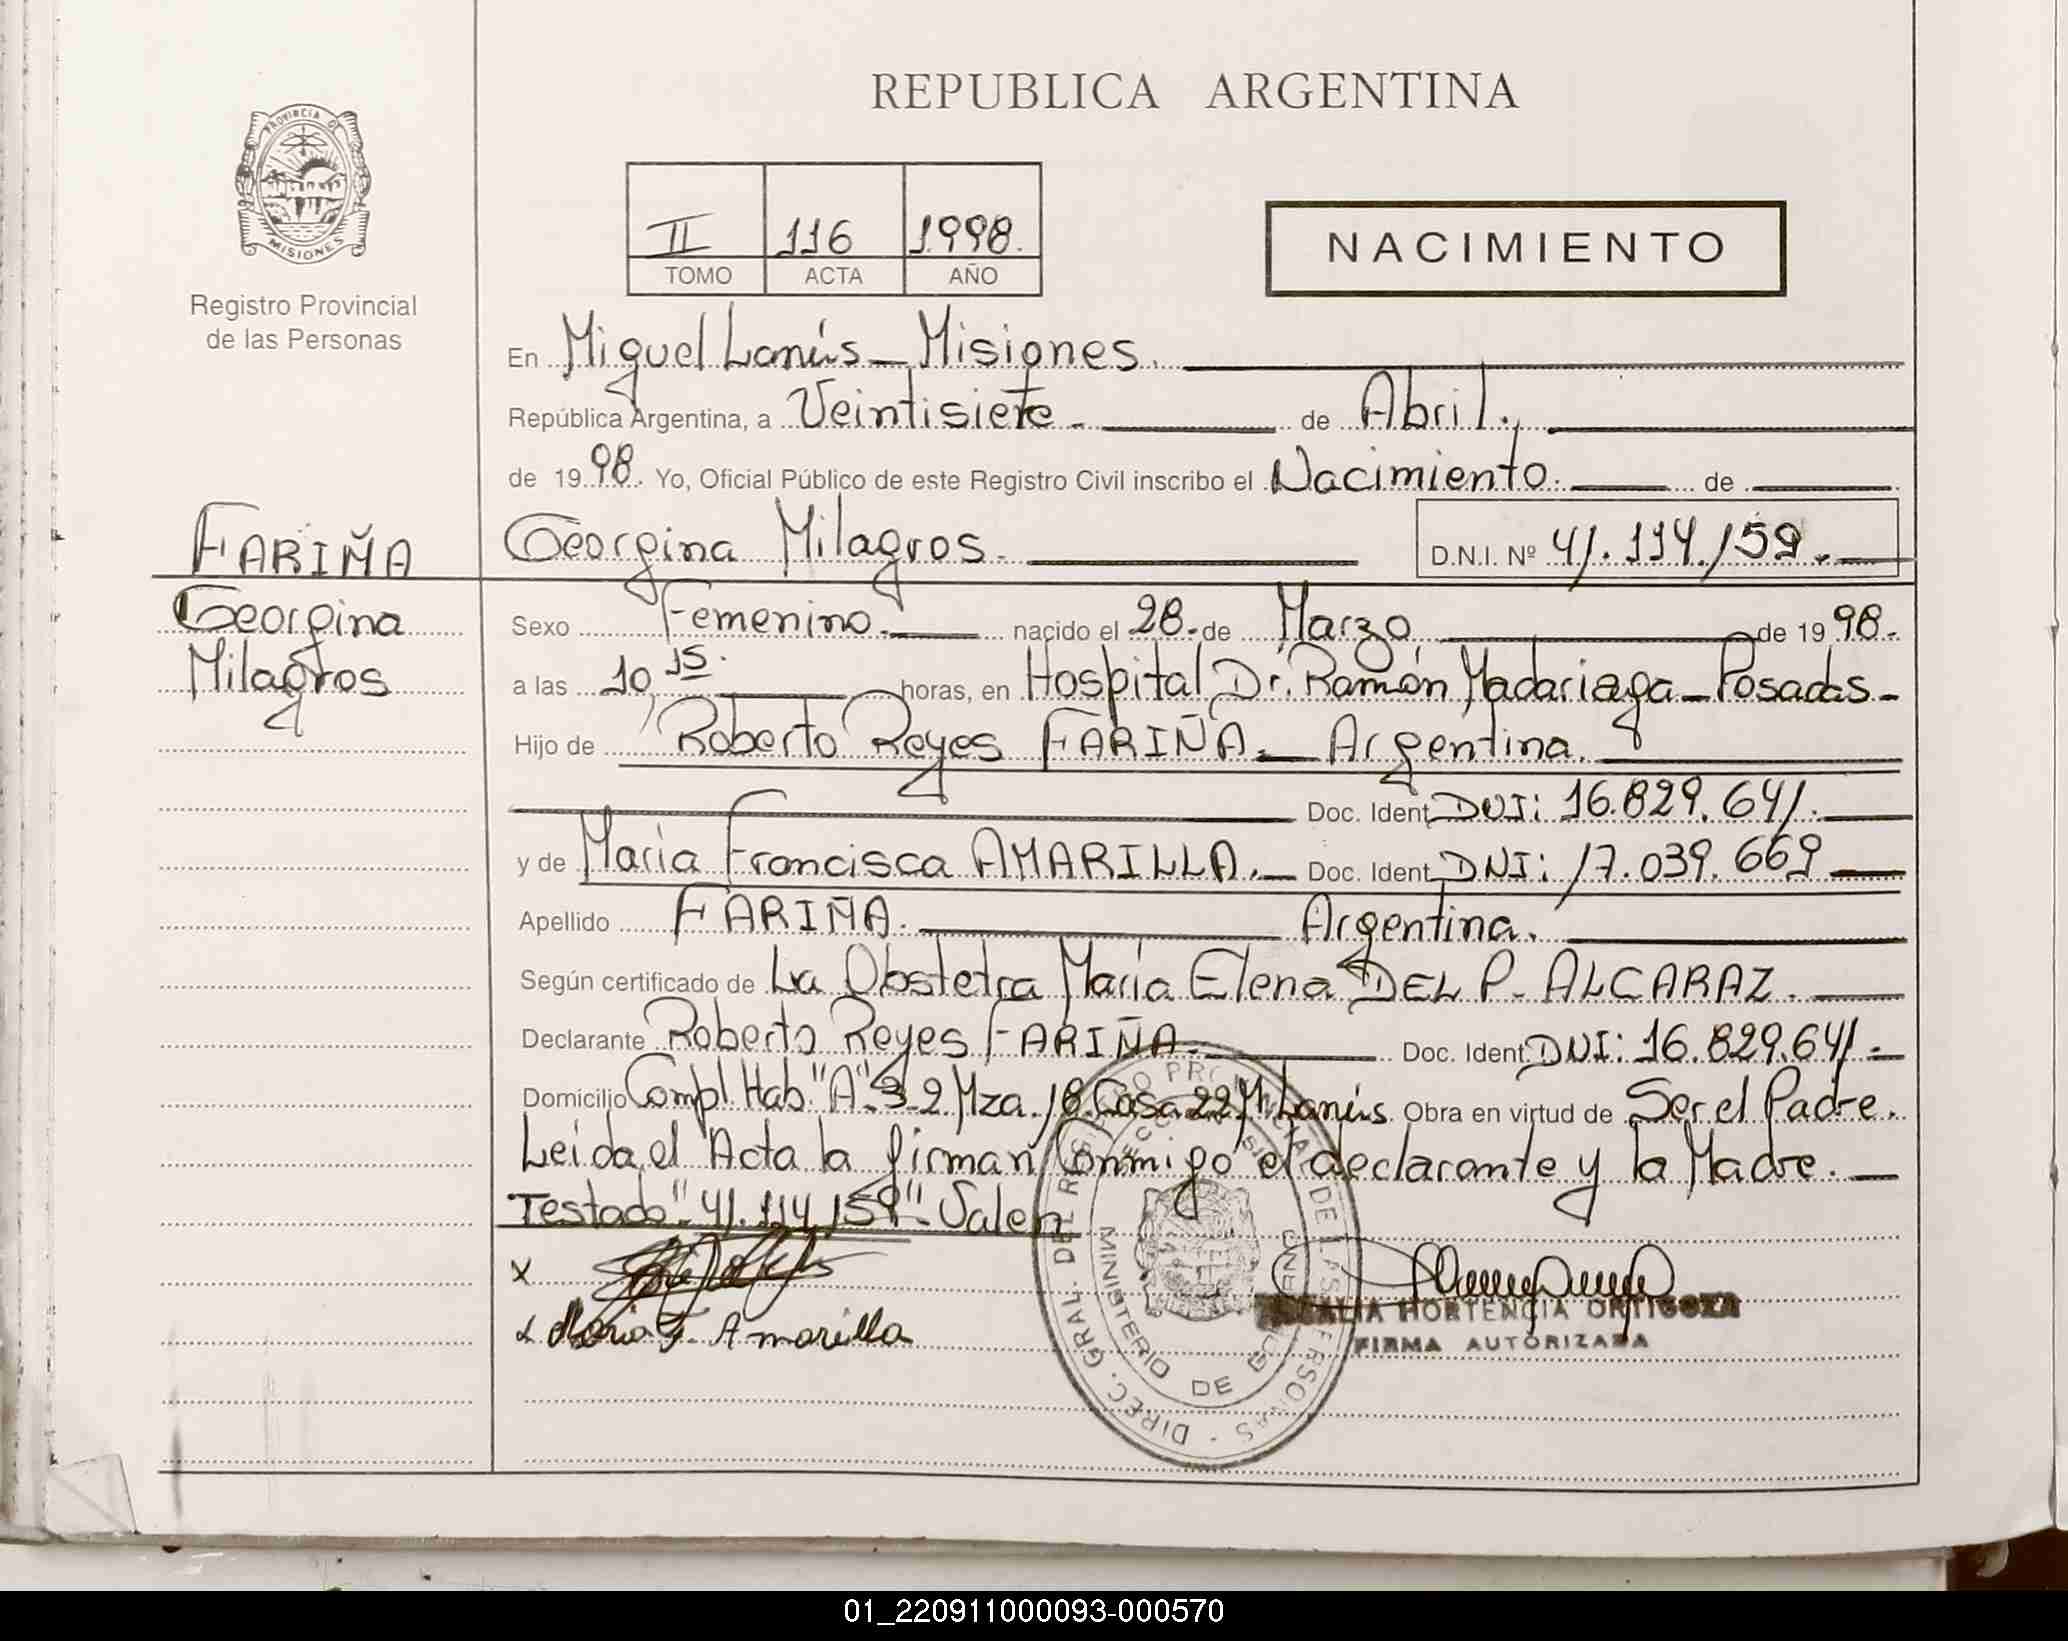 REPUBLICA ARGENTINA
PROVINCIA DE
MISIONES
Registro Provincial
de las Personas
II 116 1998.
TOMO ACTA AÑO
NACIMIENTO
En Miguel Lanús - Misiones.
República Argentina, a Veintisiete - de Abril.
de 1998. Yo, Oficial Público de este Registro Civil inscribo el Nacimiento. de
FARIÑA
Georgina Milagros. D.N.I. Nº 41.114.159.
Georgina
Milagros
Sexo Femenino. nacido el 28. de Marzo de 1998.
a las 10,15. horas, en Hospital Dr. Ramón Madariaga - Posadas -
Hijo de Roberto Reyes FARIÑA. - Argentina.
Doc. Ident. DNI: 16.829.641.
y de María Francisca AMARILLA. - Doc. Ident. DNI: 17.039.669
Apellido FARIÑA. Argentina.
Según certificado de La Obstetra María Elena DEL P. ALCARAZ.
Declarante Roberto Reyes FARIÑA. Doc. Ident. DNI: 16.829.641.
Domicilio Compl. Hab "A" 3-2 Mza. 18 Casa 22 M. Lanús. Obra en virtud de Ser el Padre.
Leida el Acta la firman Conmigo el declarante y la Madre.
Testado "41.114.159" - Valen
x
x Maria F. Amarilla
HORTENCIA ORTIGOZA
FIRMA AUTORIZADA
DIREC. GRAL. DEL REGISTRO PROVINCIAL DE LAS PERSONAS
MINISTERIO DE GOBIERNO
01_220911000093-000570